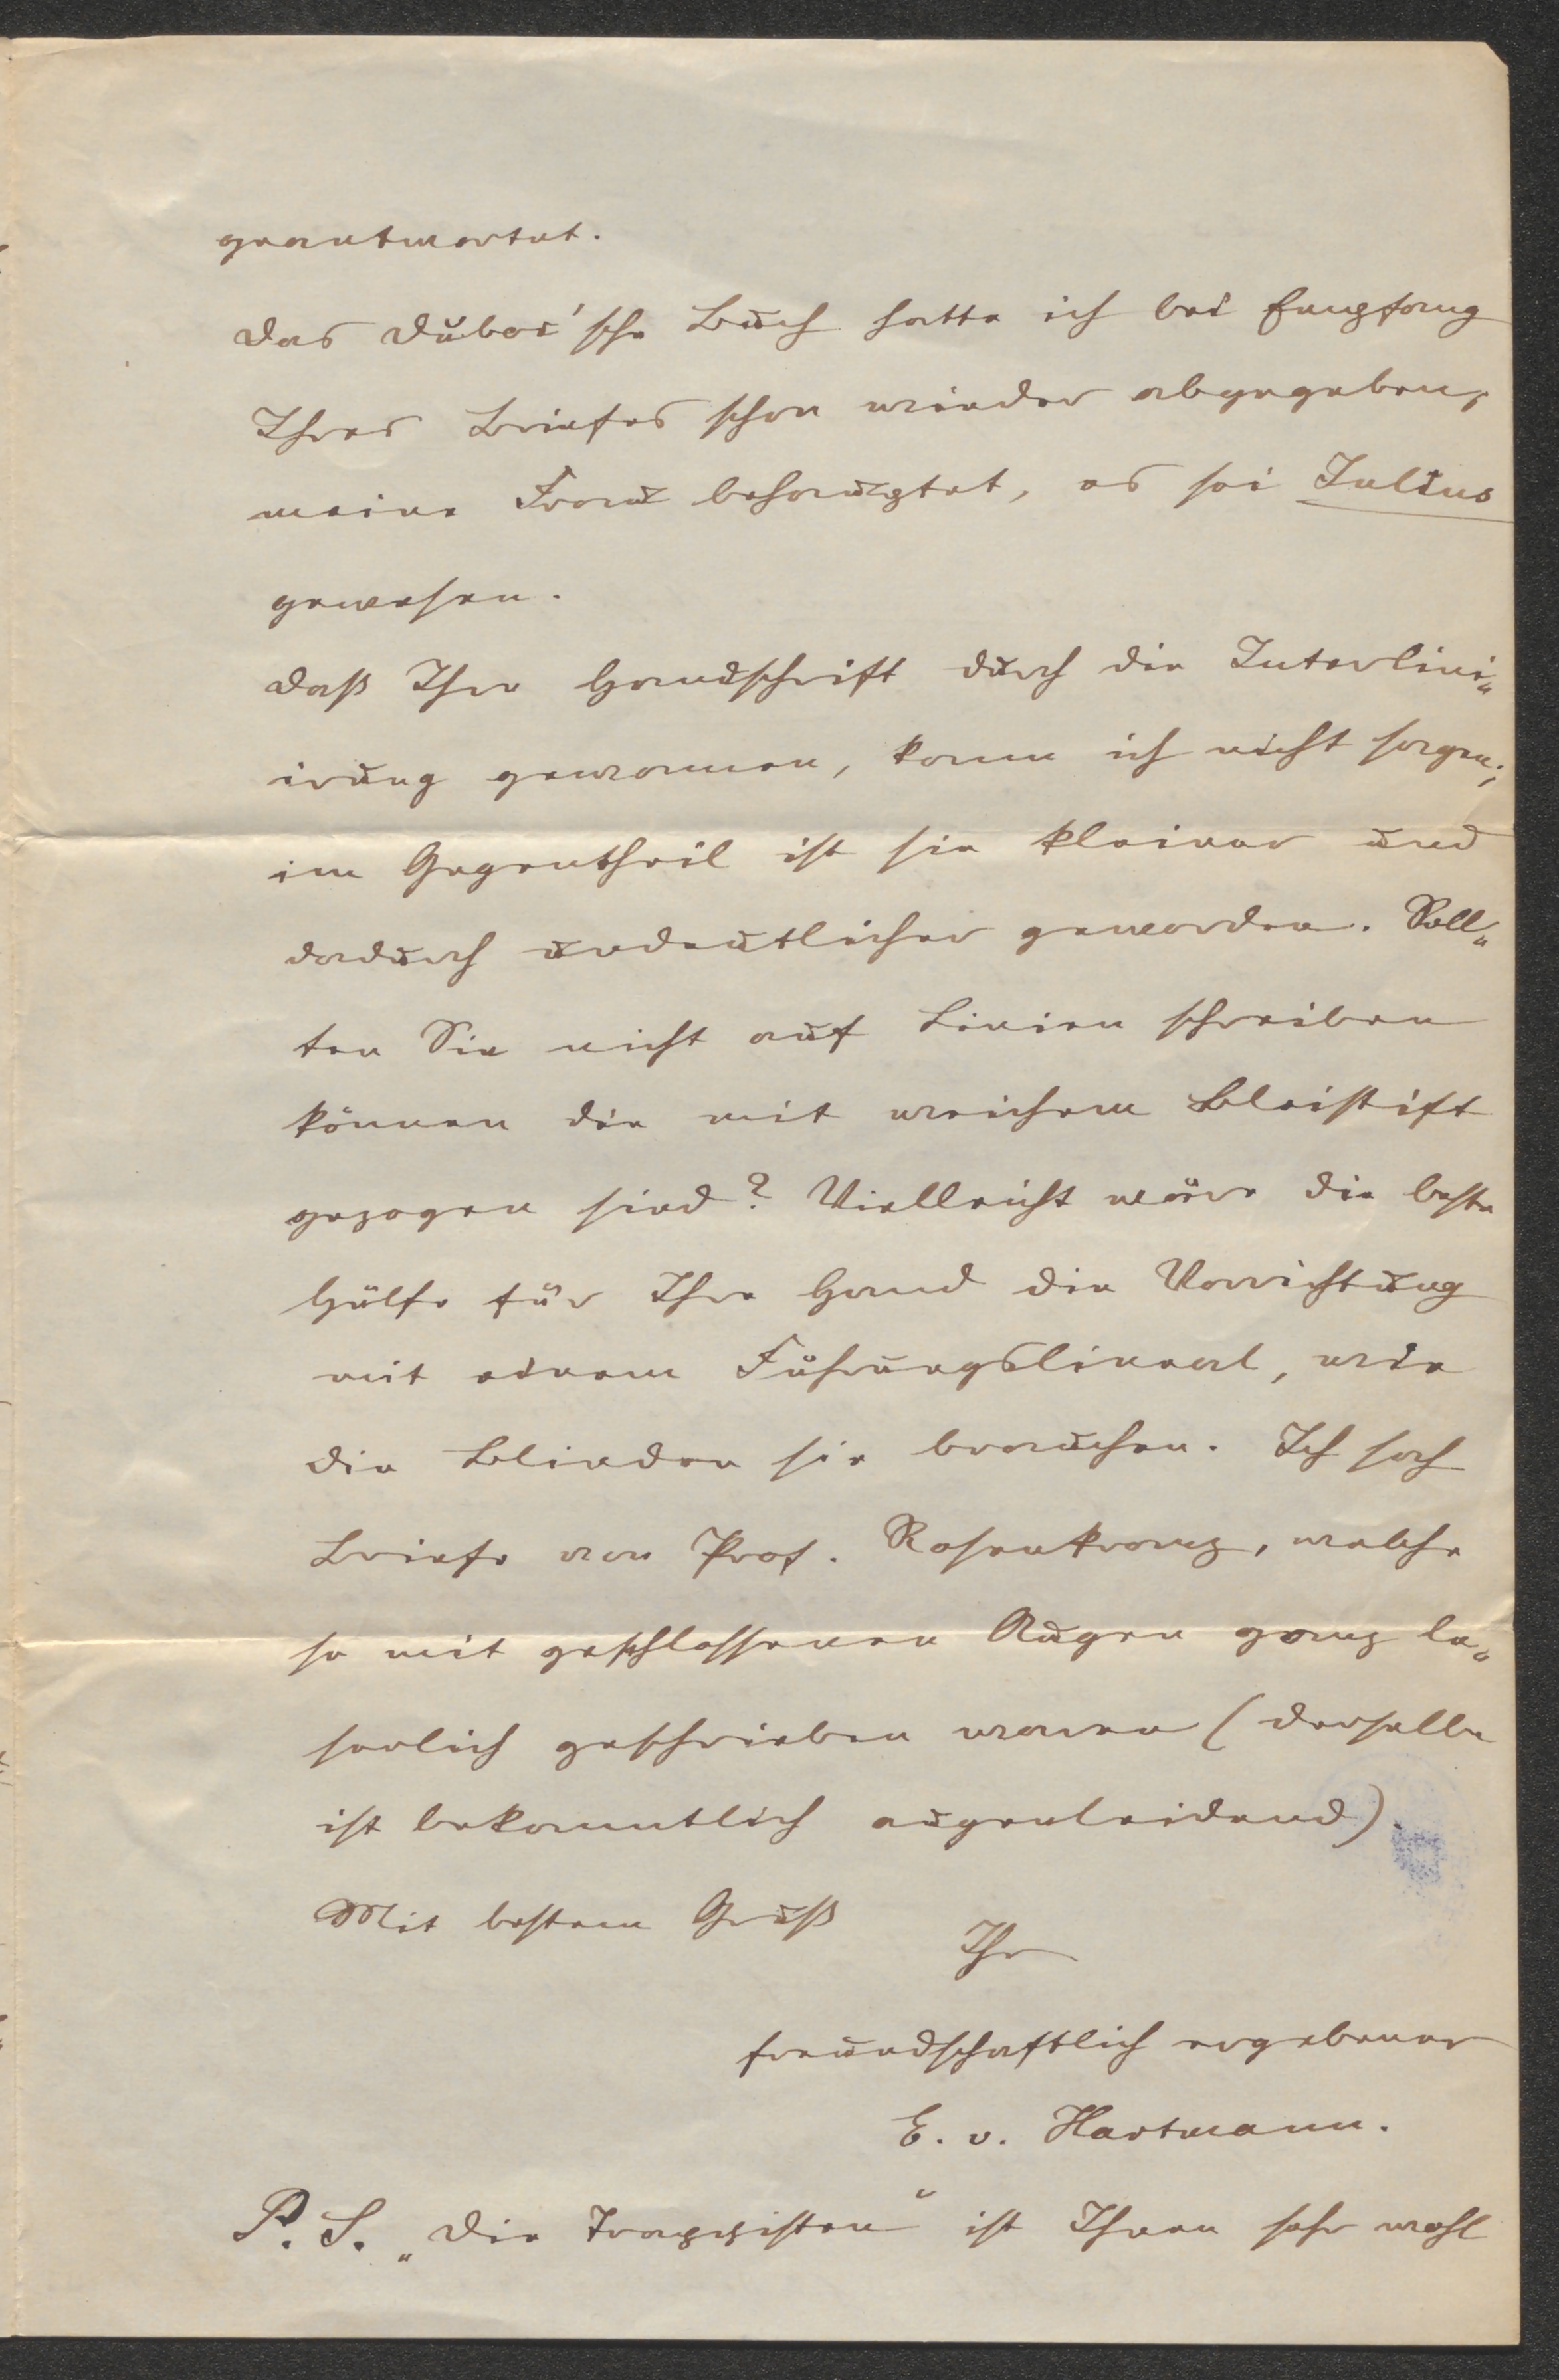 geantwortet.
Das Duboc'sche Buch hatte ich bei Empfang
Ihres Briefes schon wieder abgegeben,
meine Frau behauptet, es sei Julius
gewesen.
Daß Ihre Handschrift durch die Interlini„
irung gewonnen, kann ich nicht sagen;
im Gegentheil ist sie kleiner und
dadurch undeutlicher geworden. Soll„
ten Sie nicht auf Linien schreiben
können die mit weichem Bleistift
gezogen sind? Vielleicht wäre die beste
Hülfe für Ihre Hand die Vorrichtung
mit einem Führungslineal, wie
die Blinden sie brauchen. Ich sah
Briefe von Prof. Rosenkranz, welche
so mit geschlossenen Augen ganz le„
serlich geschrieben waren (derselbe
ist bekanntlich augenleidend).
Mit bestem Gruß
Ihr
freundschaftlich ergebener
E. v. Hartmann.
P. S. „Die Trappisten“ ist Ihnen sehr wohl